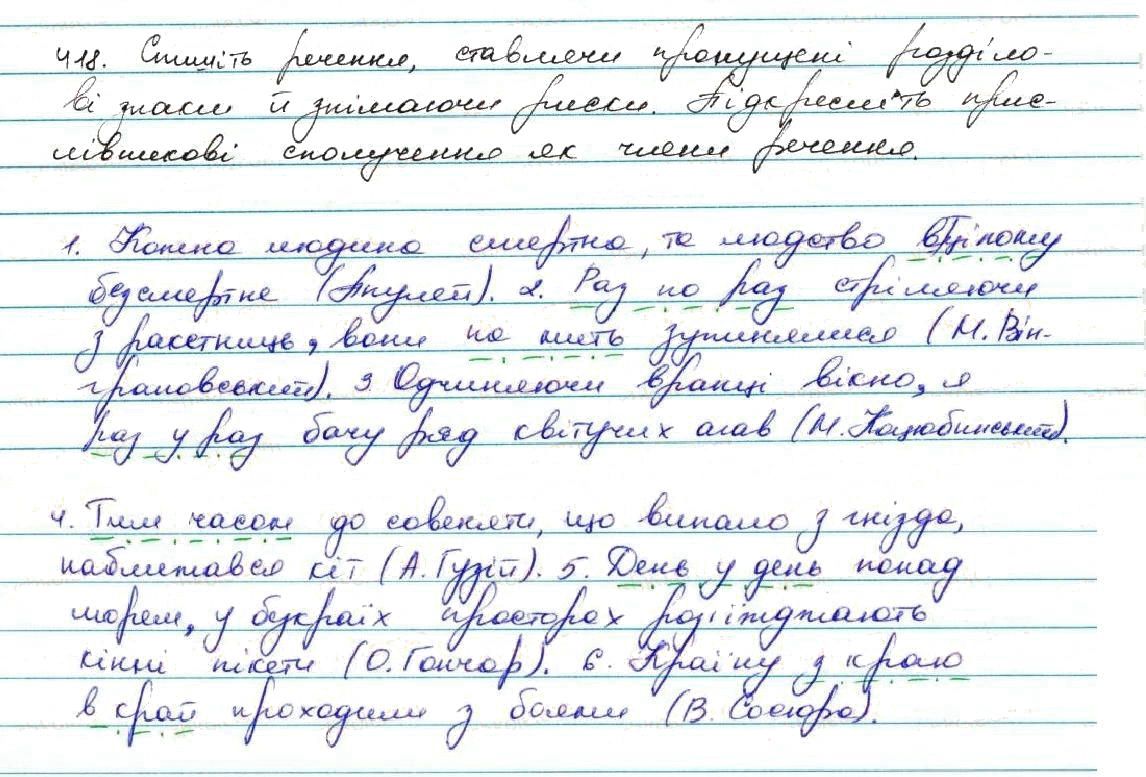 418. Спишіть речення, ставлячи пропущені розділо-
ві знаки й знімаючи риски. Підкресліть прис-
лівникові сполучення як члени речення.
1. Кожна людина смертна, та людство вцілому
безсмертне (Апулей). 2. Раз по раз стріляючи
з ракетниць, вони на мить зупинялися (М. Він-
грановський). 3 Одчиняючи вранці вікно, я
раз у раз бачу ряд квітучих агав (М. Коцюбинський).
4. Тим часом до совеняти, що випало з гнізда,
наближався кіт (А. Гузій). 5. День у день понад
морем, у безкраїх просторах роз'їжджають
кінні пікети (О. Гончар). 6. Країну з краю
в край проходили з боями (В. Сосюра).